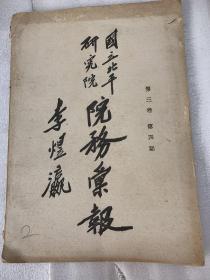 國立北平
研究院
院務彙報
李煜瀛
第三卷 第四期
2